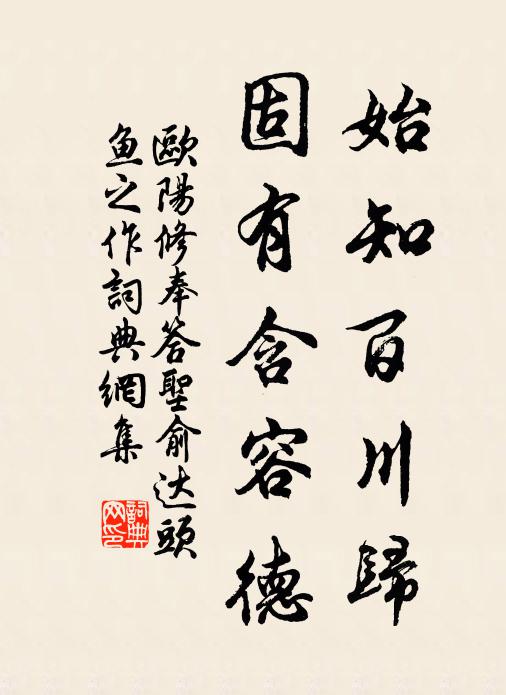 始知百川歸
固有含容德
歐陽修奉答聖俞达頭
魚之作詞典網集
詞典网印